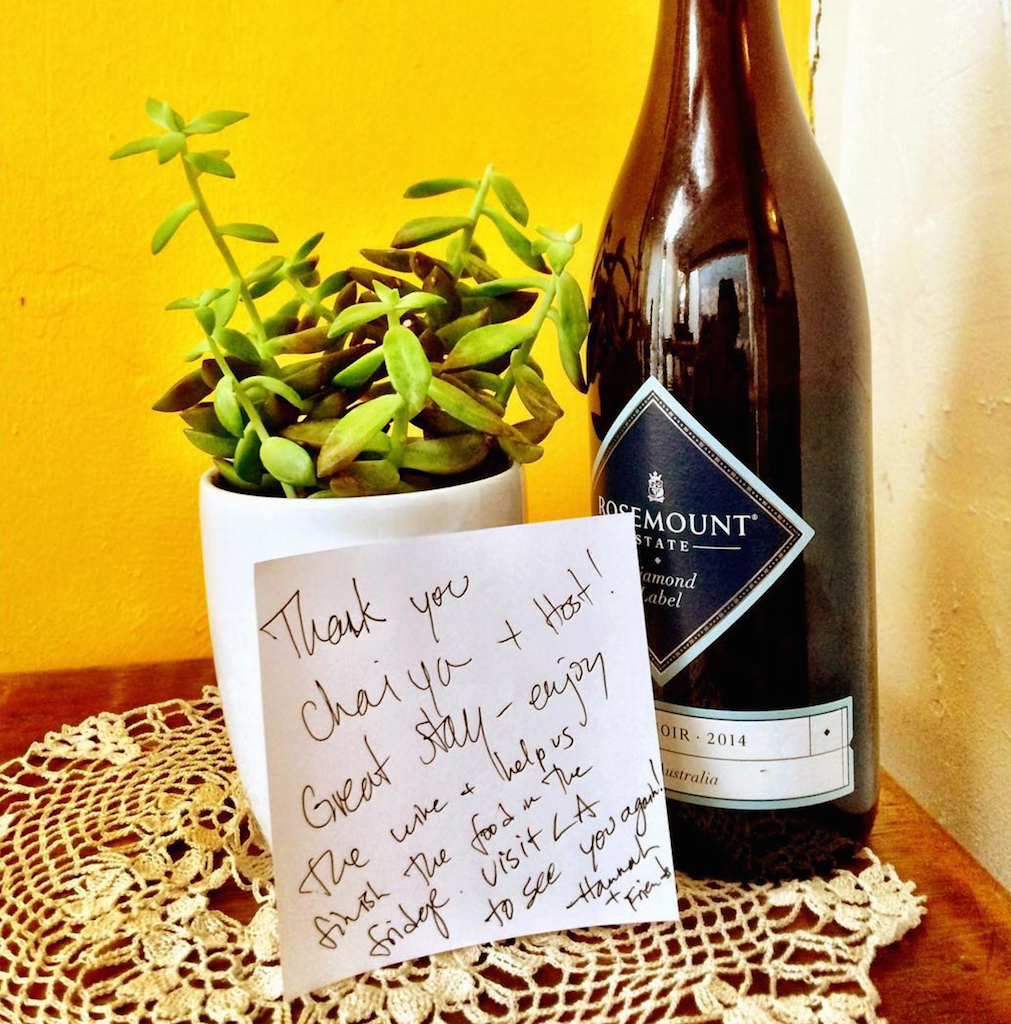 Thank you
Chaiya + Host!
Great stay - enjoy
the wine + help us
finish the food in the
fridge. visit LA
to see you again!
Hannah
+ Friends
ROSEMOUNT®
ESTATE
Diamond
Label
OIR · 2014
Australia